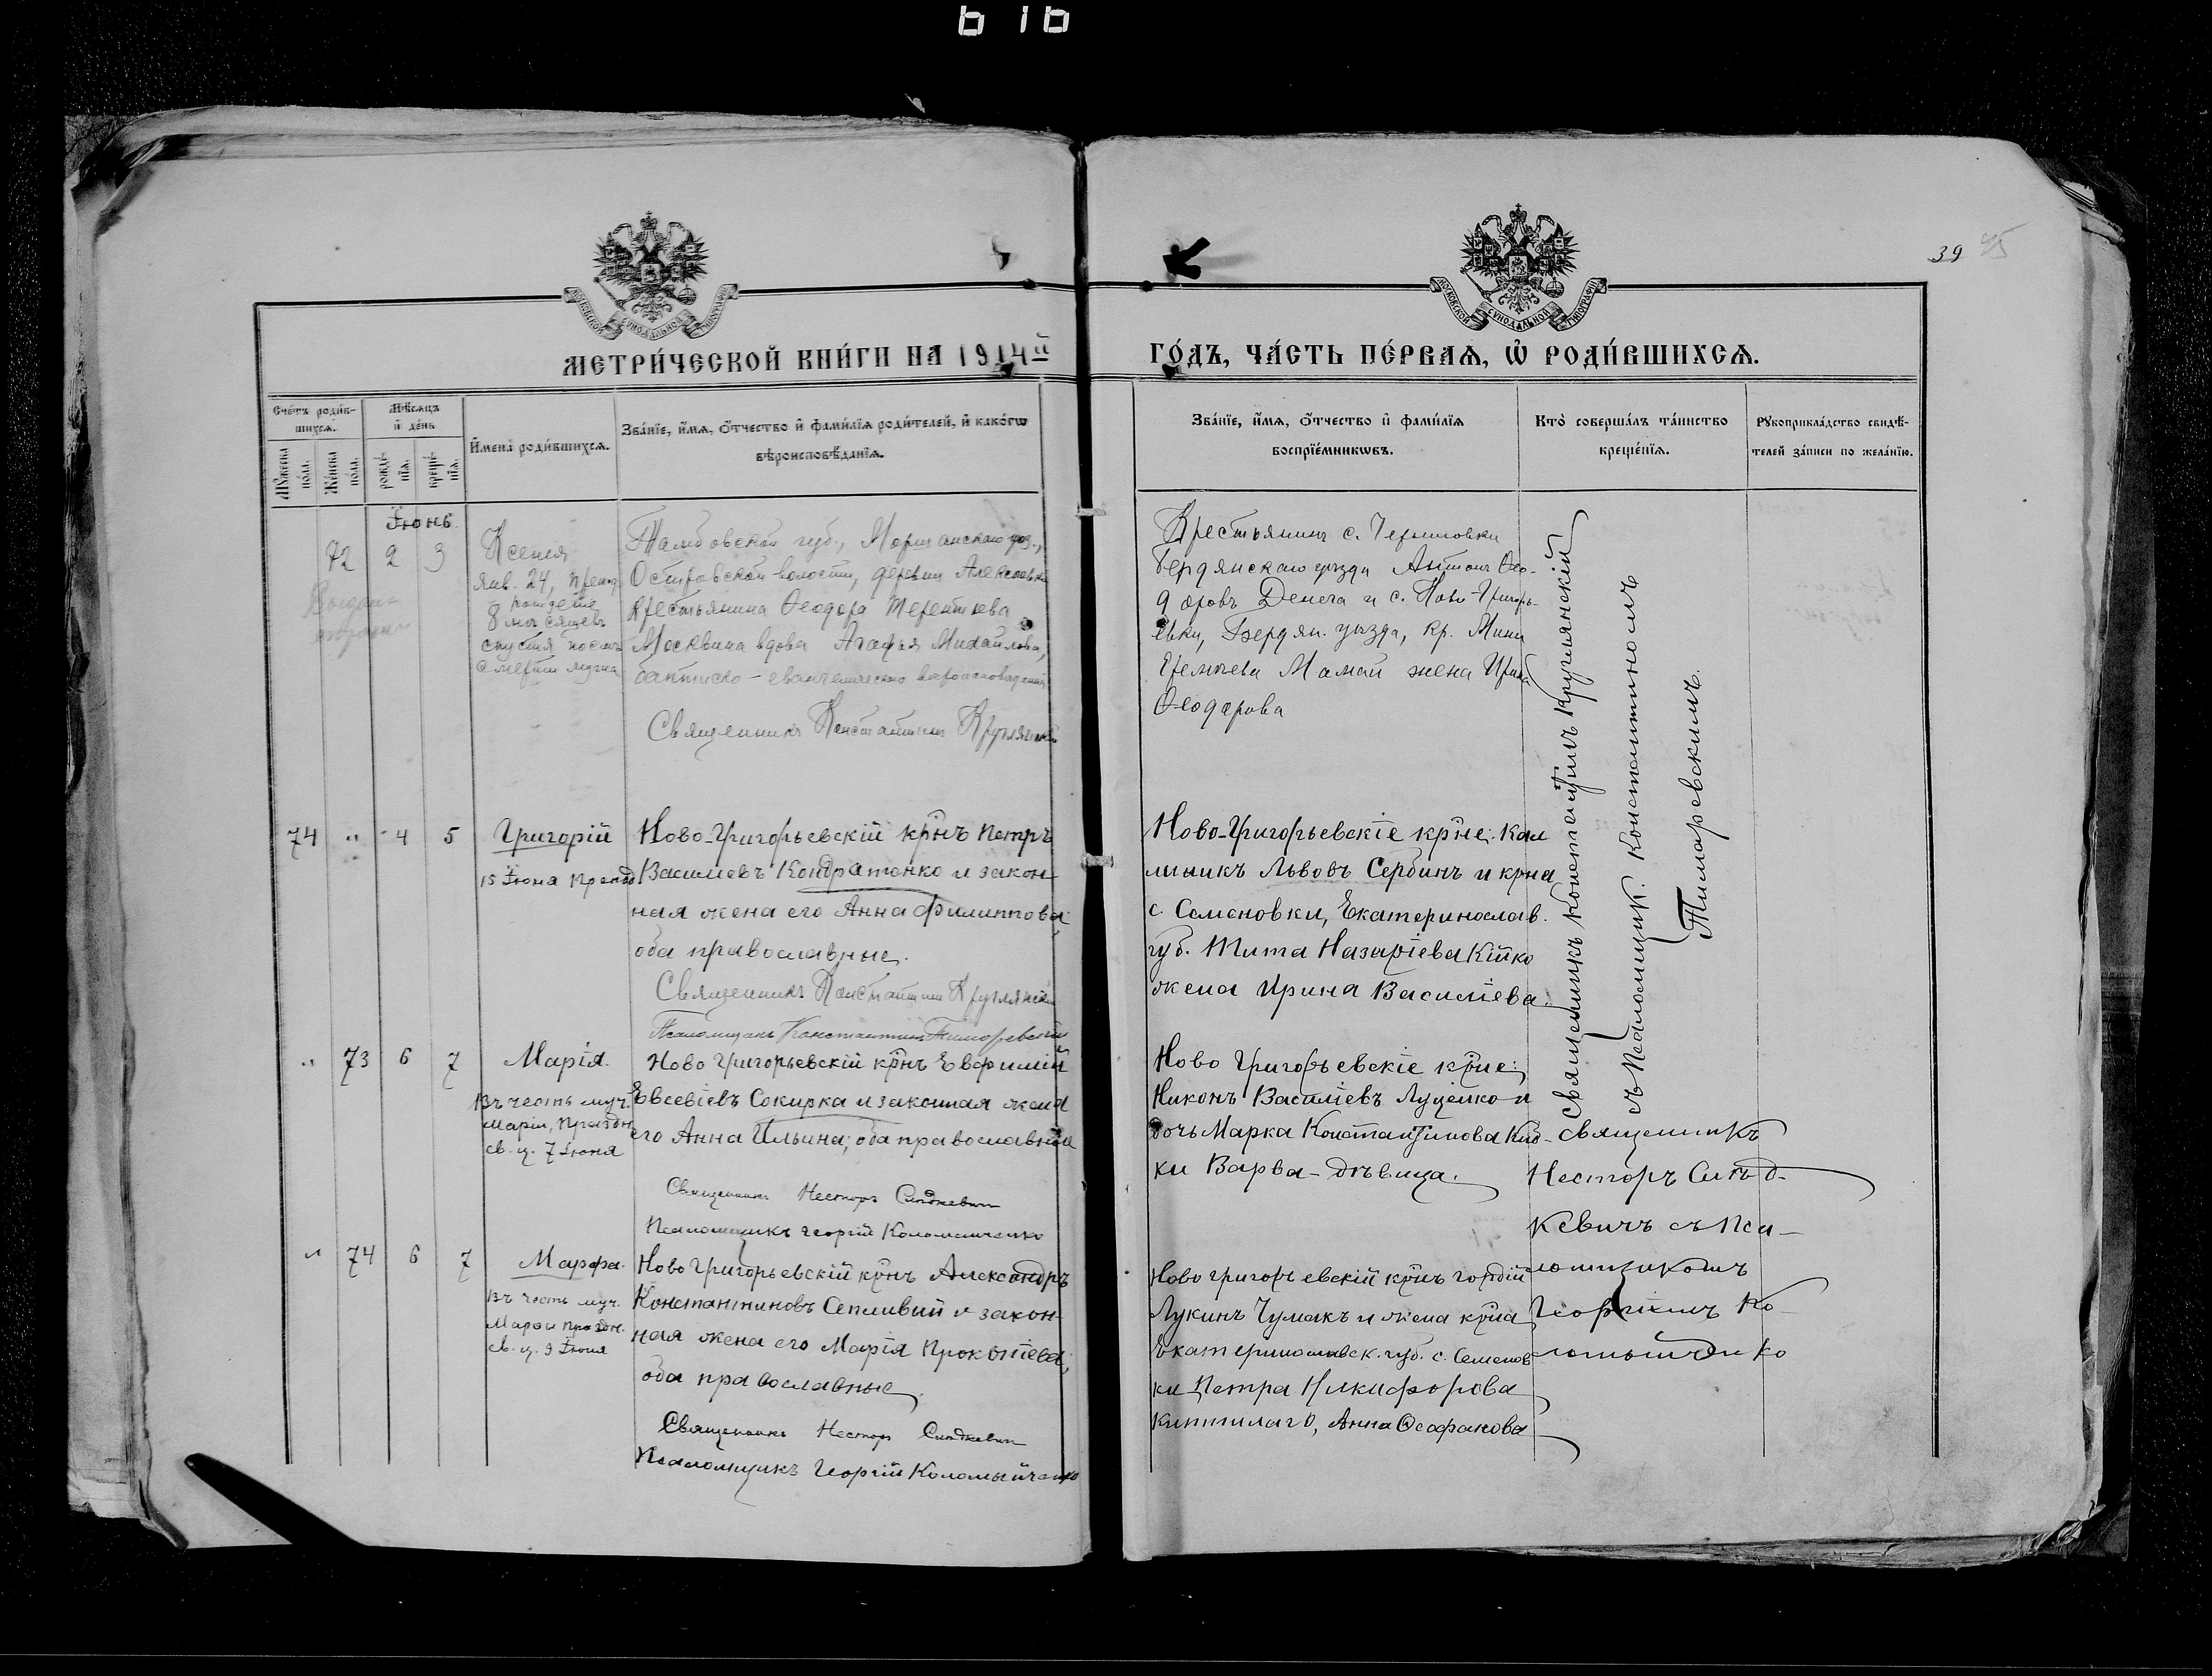 616
39 45
МОСКОВСКОЙ СѴНОДАЛЬНОЙ ТИПОГРАФІИ
МОСКОВСКОЙ СѴНОДАЛЬНОЙ ТИПОГРАФІИ
МЕТРИ́ЧЕСКОЙ КНИ́ГИ НА 1914й
ГО́ДЪ, ЧА́СТЬ ПЕ́РВАѦ, Ѡ҆ РОДИ́ВШИХСѦ.
Сче́тъ роди́в-
шихсѧ.
Мꙋ́жеска
по́ла.
Же́нска
по́ла.
Мѣ́сѧцъ
и҆ де́нь
рожде́-
нїѧ.
креще́-
нїѧ.
И҆мена̀ роди́вшихсѧ.
Зва́нїе, и҆́мѧ, ѻ҆́тчество и҆ фами́лїѧ роди́телей, и҆ како́гѡ
вѣроисповѣ́данїѧ.
Зва́нїе, и҆́мѧ, ѻ҆́тчество и҆ фами́лїѧ
воспрїе́мникѡвъ.
Кто̀ соверша́лъ та́инство
креще́нїѧ.
Рꙋкоприкла́дство свидѣ́-
телей за́писи по жела́нїю.
Іюнь.
72 2 3
Ксенія
янв. 24,
рождение
8 месяцевъ
спустя после
смерти мужа
Тамбовской губ., Моршанскаго уез.,
Островской волости, деревни Алексеевки
крестьянина Ѳеодора Терентьева
Москвина вдова Агафья Михайлова,
баптиско-евангелическаго вероисповедания
Священникъ Константинъ Круглянскій
Крестьянинъ с.
Бердянскаго уезда Антонъ Ѳео-
доровъ Денега и с. Ново-Григорь-
евки, Бердян. уезда, кр. Мины
Еремиева Мамай жена Ирина
Ѳеодорова
Священникъ Константинъ Круглянскій
съ Псаломщик. Константиномъ
Тимаревскимъ.
74 " 4 5
Григорій
15 Іюня
Ново-Григорьевскій кр̃нъ Петръ
Василіевъ Кондратенко и закон-
ная жена его Анна Филиппова;
оба православные.
Священникъ Константинъ Круглянскій
Псаломщикъ Константинъ Тимаревскій
Ново-Григорьевскіе кр̃не: Кал
линикъ Львовъ Сербинъ и кр̃на
с. Семеновки, Екатеринослав.
губ. Тита Назаріева Кійко
жена Ирина Василіева.
" 73 6 7
Марія.
Въ честь муч.
Маріи, Праздн.
св. ц. 7 Іюня
Ново Григорьевскій кр̃нъ Евфимій
Евсевіевъ Сокирка и законная жена
его Анна Ильина; оба православные
Священникъ Несторъ Синдкевич
Псаломщикъ Георгій Коломыйченко
Ново Григорьевскіе кр̃не:
Никонъ Василіевъ Луценко и
дочь Марка Константинова
ки Варва- дѣвица.
Священникъ
Несторъ Синд-
кевичъ съ Пса-
ломщикомъ
Георгіемъ Ко-
ломыйченко
" 74 6 7
Марфа.
Въ честь муч.
Марфы праздн.
св. ц. 9 Іюня
Ново Григорьевскій кр̃нъ Александръ
Константиновъ Сепливый и закон-
ная жена его Марія Прокопіева;
оба православные
Священникъ Несторъ Синдкевич
Псаломщикъ Георгій Коломыйченко
Ново григорьевскій кр̃нъ Гордій
Лукинъ Чумакъ и жена кр̃на
Екатеринославск. губ. с. Семенов
ки Петра Никифорова
Киптилаго, Анна Ѳеофанова